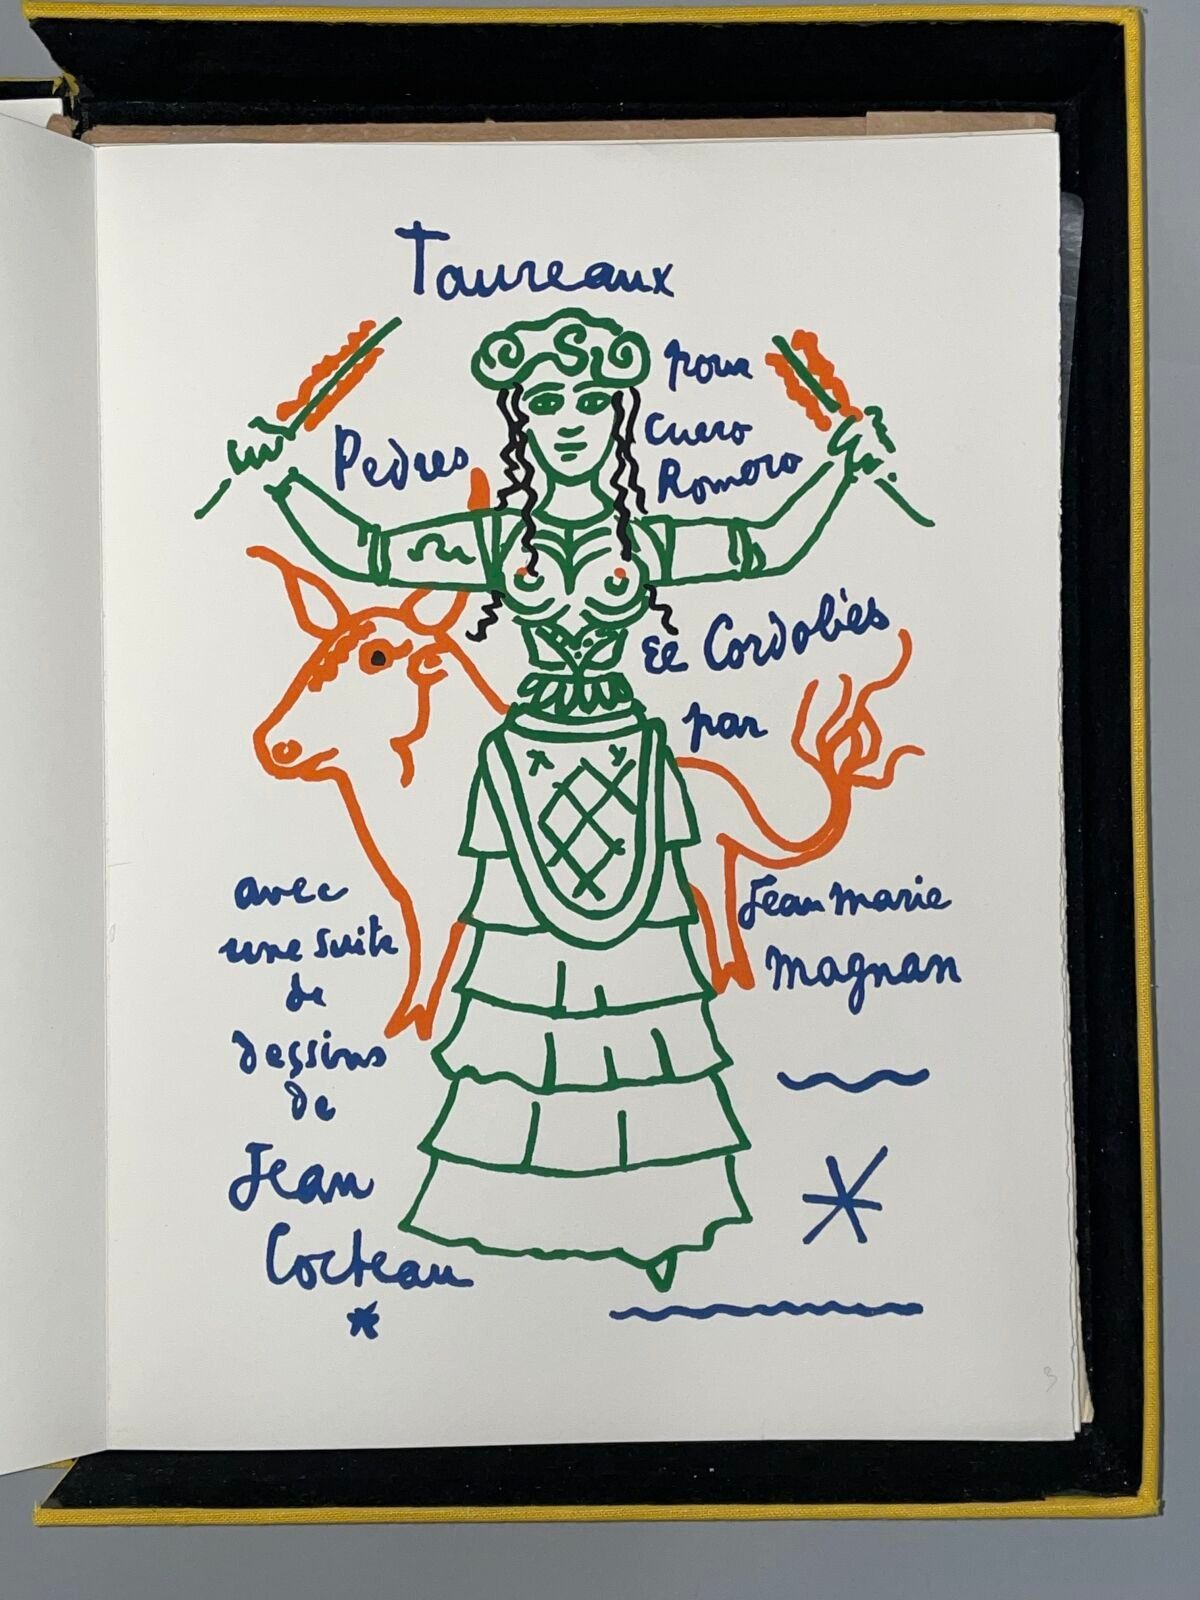 Taureaux
pour
Pedrés
Curro
Romero
El Cordobés
par
Jean Marie
Magnan
avec
une suite
de
dessins
de
Jean
Cocteau